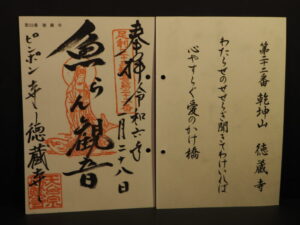 第三十二番 乾坤山 徳蔵寺
わたらせのせせらぎ聞きてわけいれば
心やすらぐ愛のかけ橋
奉拝
令和六年
一月二十八日
魚らん観音
ピンポン寺 徳蔵寺